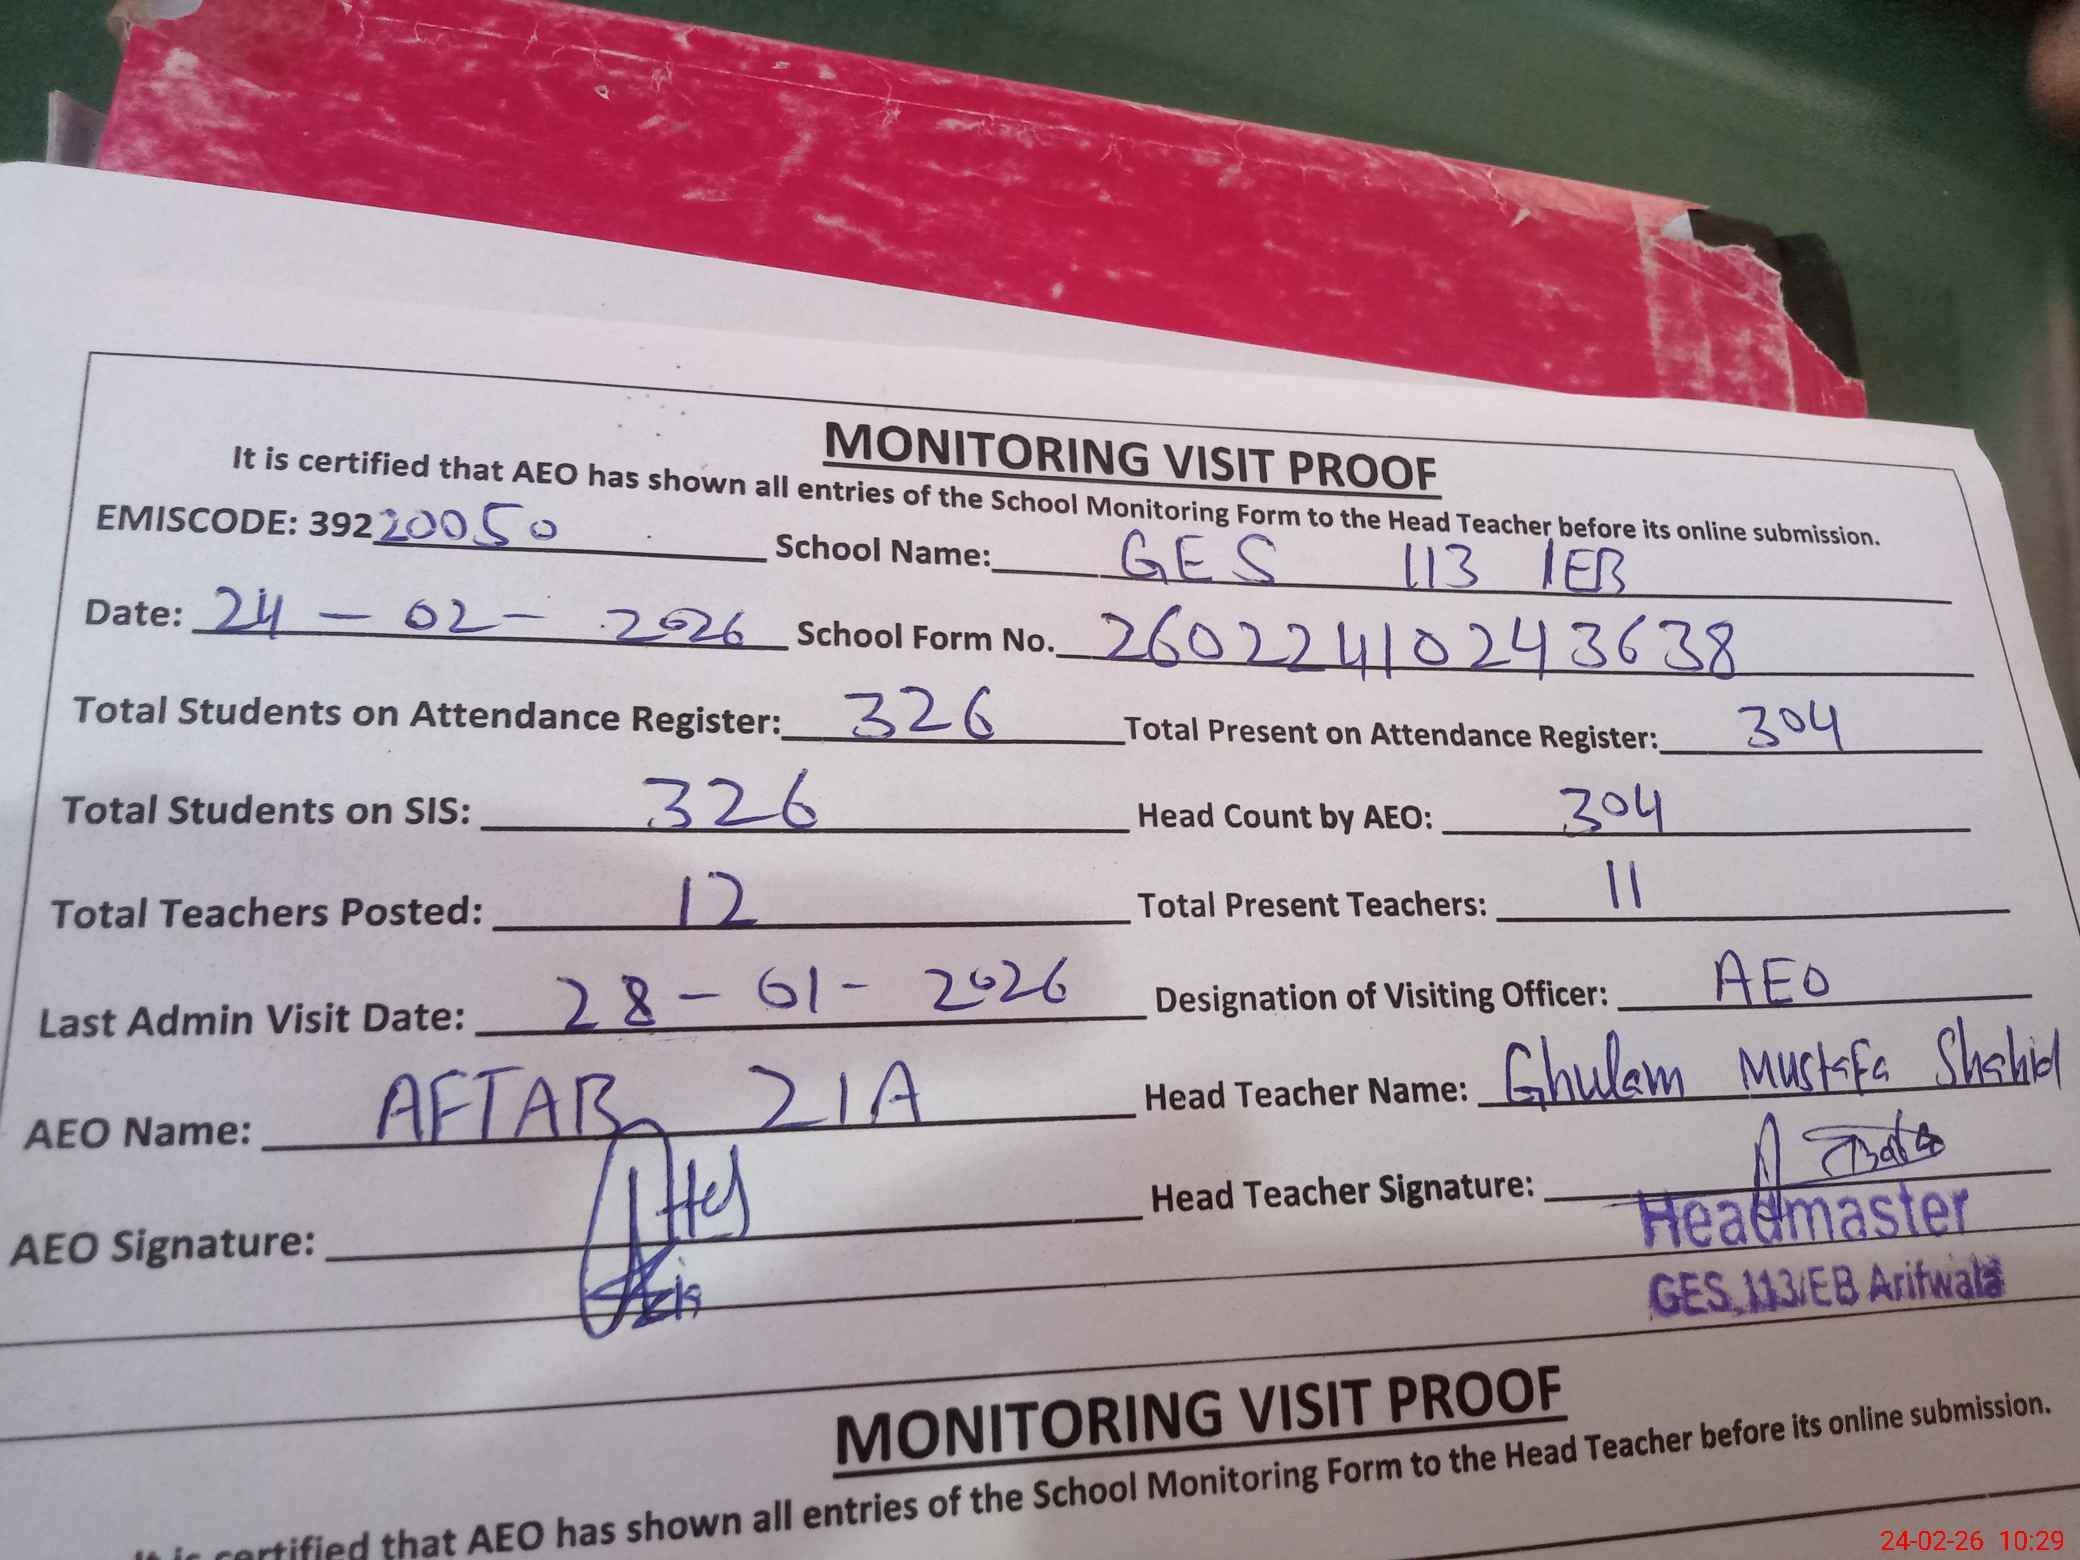 MONITORING VISIT PROOF
It is certified that AEO has shown all entries of the School Monitoring Form to the Head Teacher before its online submission.
EMISCODE: 39220050 School Name: GES 113/EB
Date: 24-02-2026 School Form No. 26022410243638
Total Students on Attendance Register: 326 Total Present on Attendance Register: 304
Total Students on SIS: 326 Head Count by AEO: 304
Total Teachers Posted: 12 Total Present Teachers: 11
Last Admin Visit Date: 28-01-2026 Designation of Visiting Officer: AEO
AEO Name: AFTAB ZIA Head Teacher Name: Ghulam Mustafa Shahid
AEO Signature: Head Teacher Signature:
Headmaster
GES 113/EB Arifwala
MONITORING VISIT PROOF
It is certified that AEO has shown all entries of the School Monitoring Form to the Head Teacher before its online submission.
24-02-26 10:29